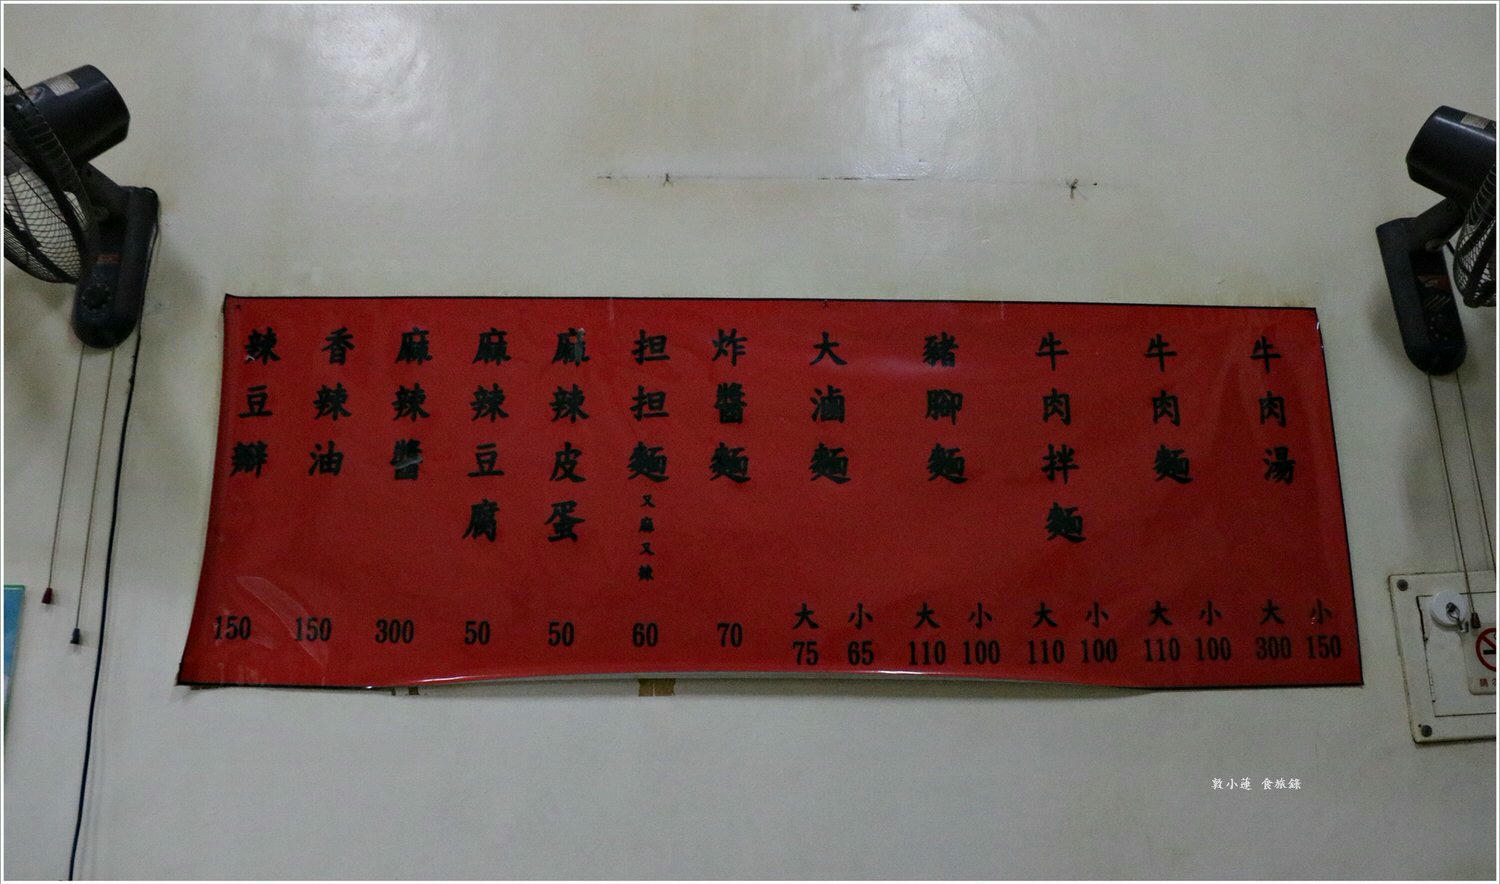 牛肉湯 大300 小150
牛肉麵 大110 小100
牛肉拌麵 大110 小100
豬腳麵 大110 小100
大滷麵 大75 小65
炸醬麵 70
担担麵 又麻又辣 60
麻辣皮蛋 50
麻辣豆腐 50
麻辣醬 300
香辣油 150
辣豆瓣 150
敦小蓮 食旅錄